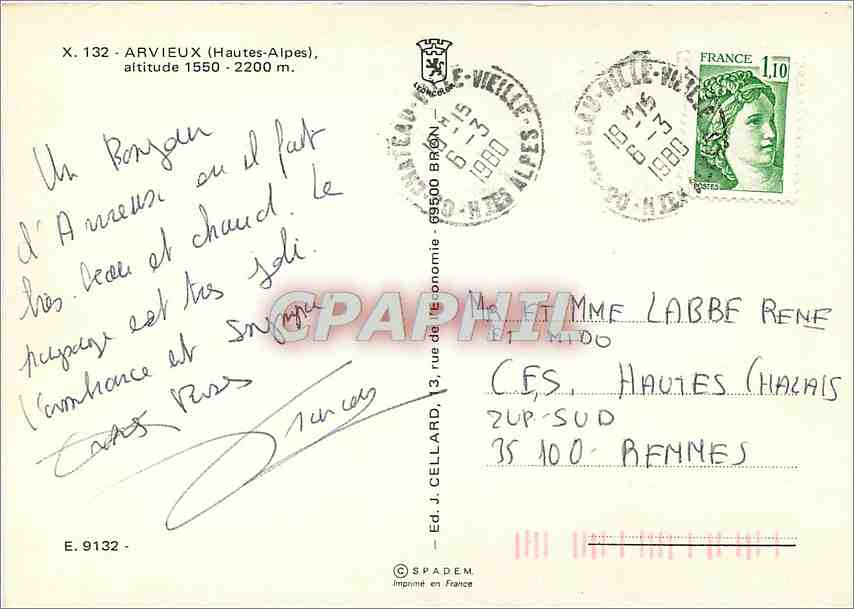 X. 132 - ARVIEUX (Hautes-Alpes),
altitude 1550 - 2200 m.
LYONCOLOR
CHATEAU-VILLE-VIEILLE
18 H 15
6 - 3
1980
05 - HTES ALPES
CHATEAU-VILLE-VIEILLE
18 H 15
6 - 3
1980
05 - HTES
FRANCE
1,10
POSTES
Un Bonjour
d'Arvieux où il fait
très beau et chaud. Le
paysage est très joli.
l'ambiance est sympa
Bises
François
CPAPHIL
MR ET MME LABBE RENE
ET MIDO
C.E.S. HAUTES CHALAIS
ZUP-SUD
35 100 - RENNES
Ed. J. CELLARD, 13, rue de l'Economie - 69500 BRON
E. 9132 -
© S.P.A.D.E.M.
Imprimé en France